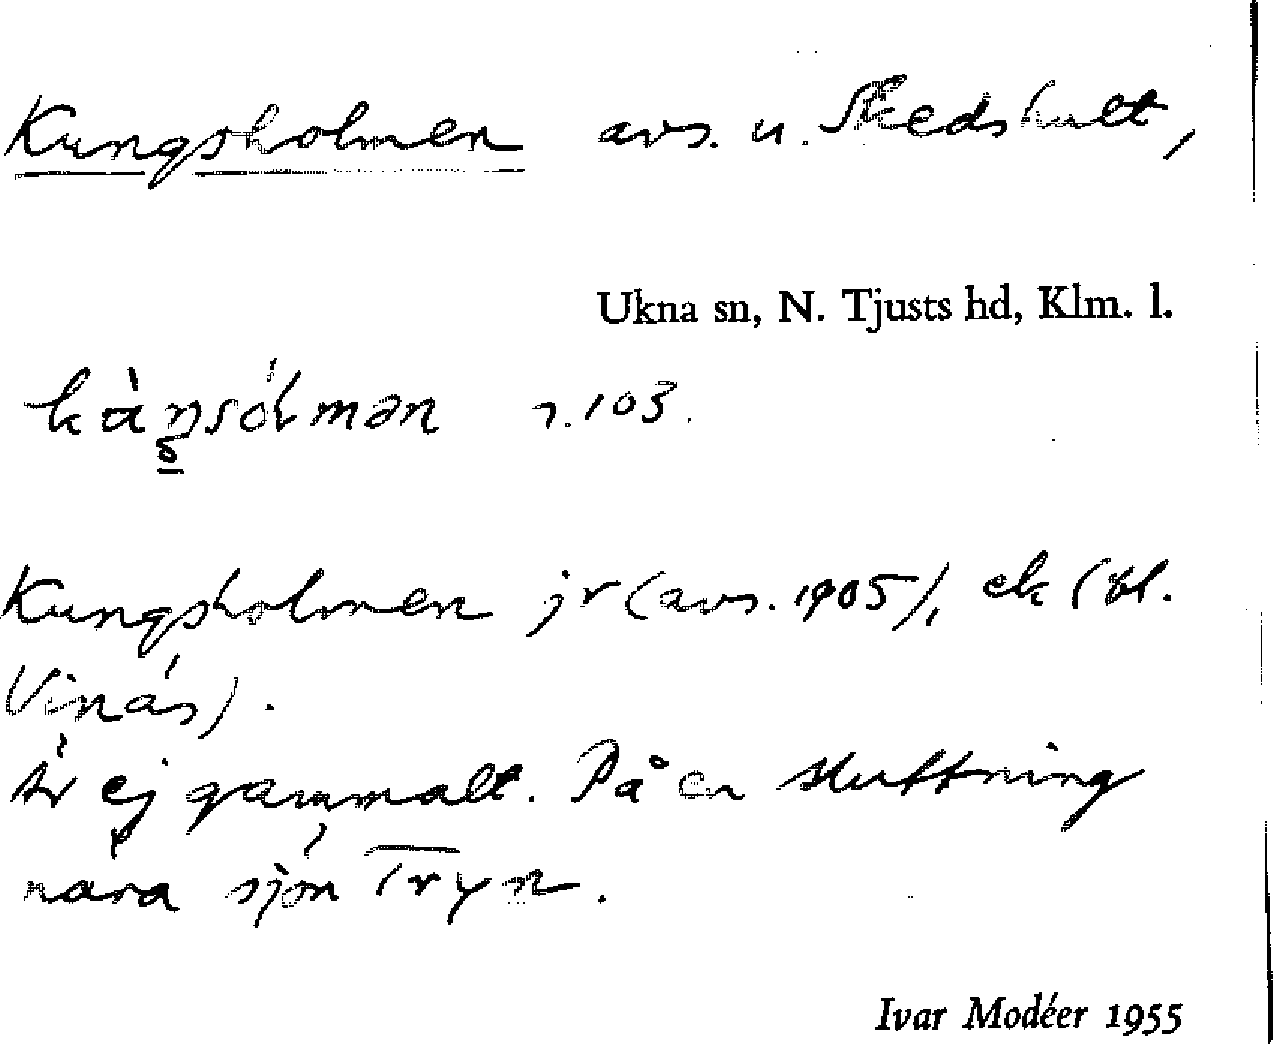 Kungsholmen avs. u. Skedshult,
Ukna sn, N. Tjusts hd, Klm. l.
r. 103.
Kungsholmen jr (avs. 1905), ek (bl.
Vinäs).
Är ej gammalt. På en sluttning
nära sjön Tryn.
Ivar Modéer 1955